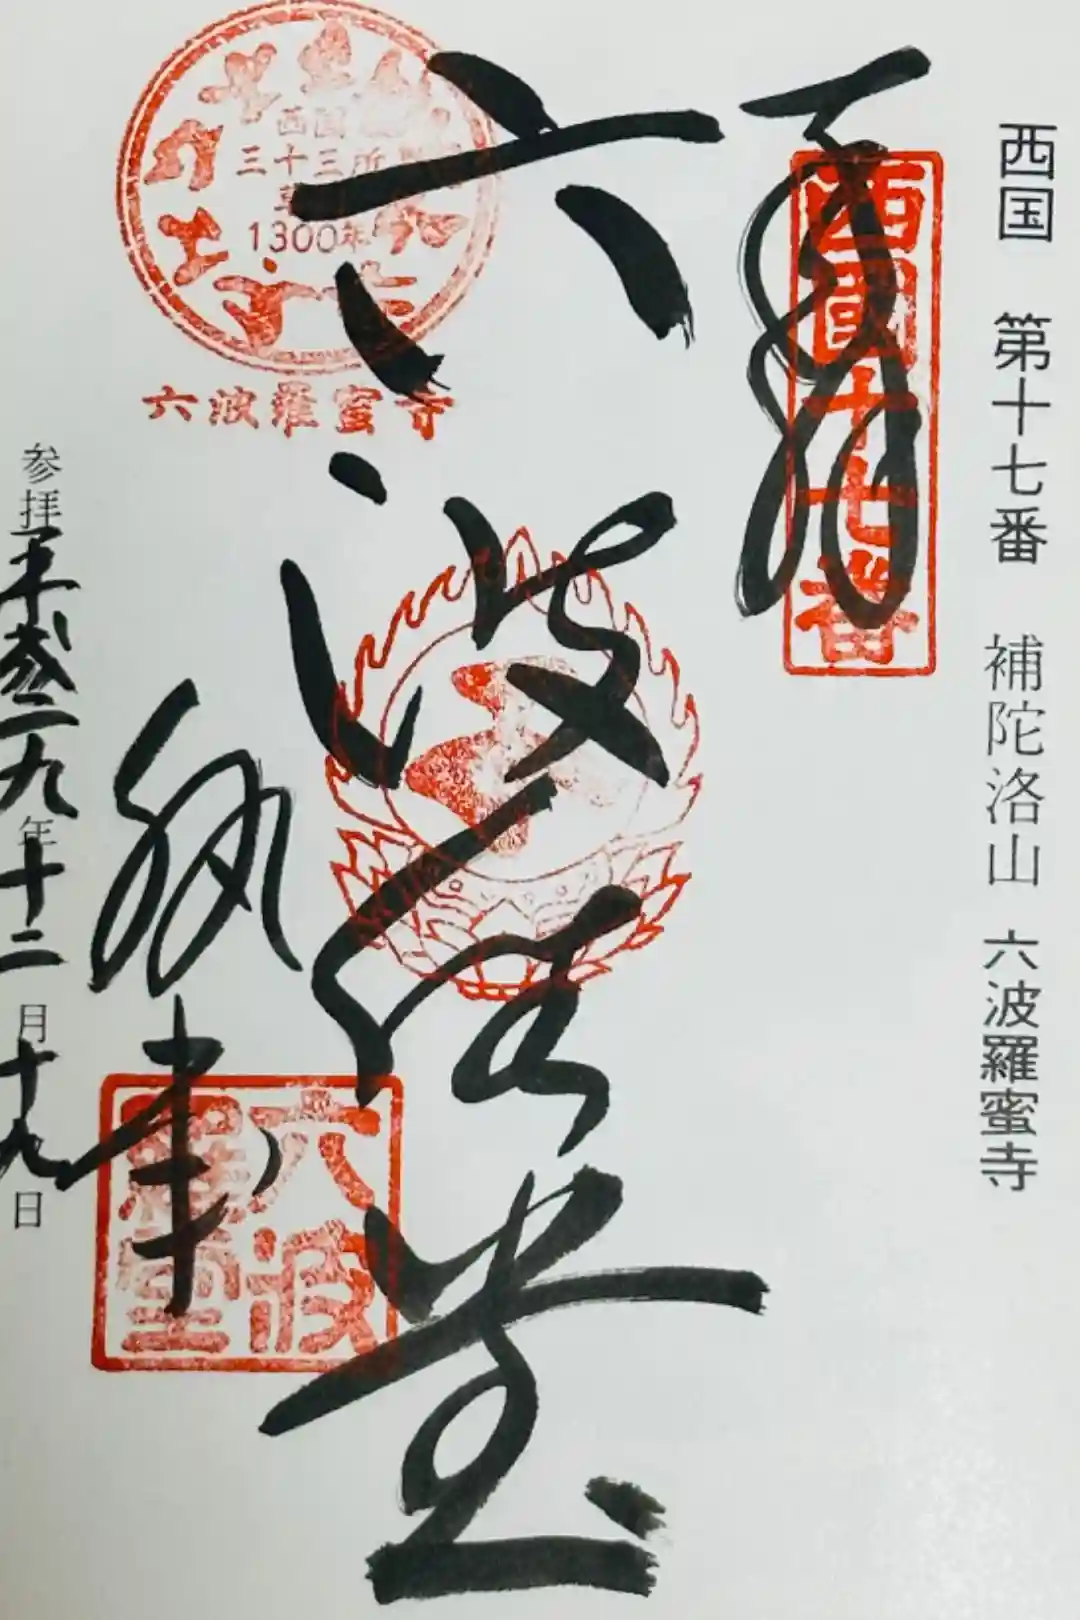 西国 第十七番 補陀洛山 六波羅蜜寺
奉拝
西國十七番
六波羅堂
西国
三十三所
草創
1300年
六波羅蜜寺
六波羅堂
執事
参拝平成二九年十二月十九日